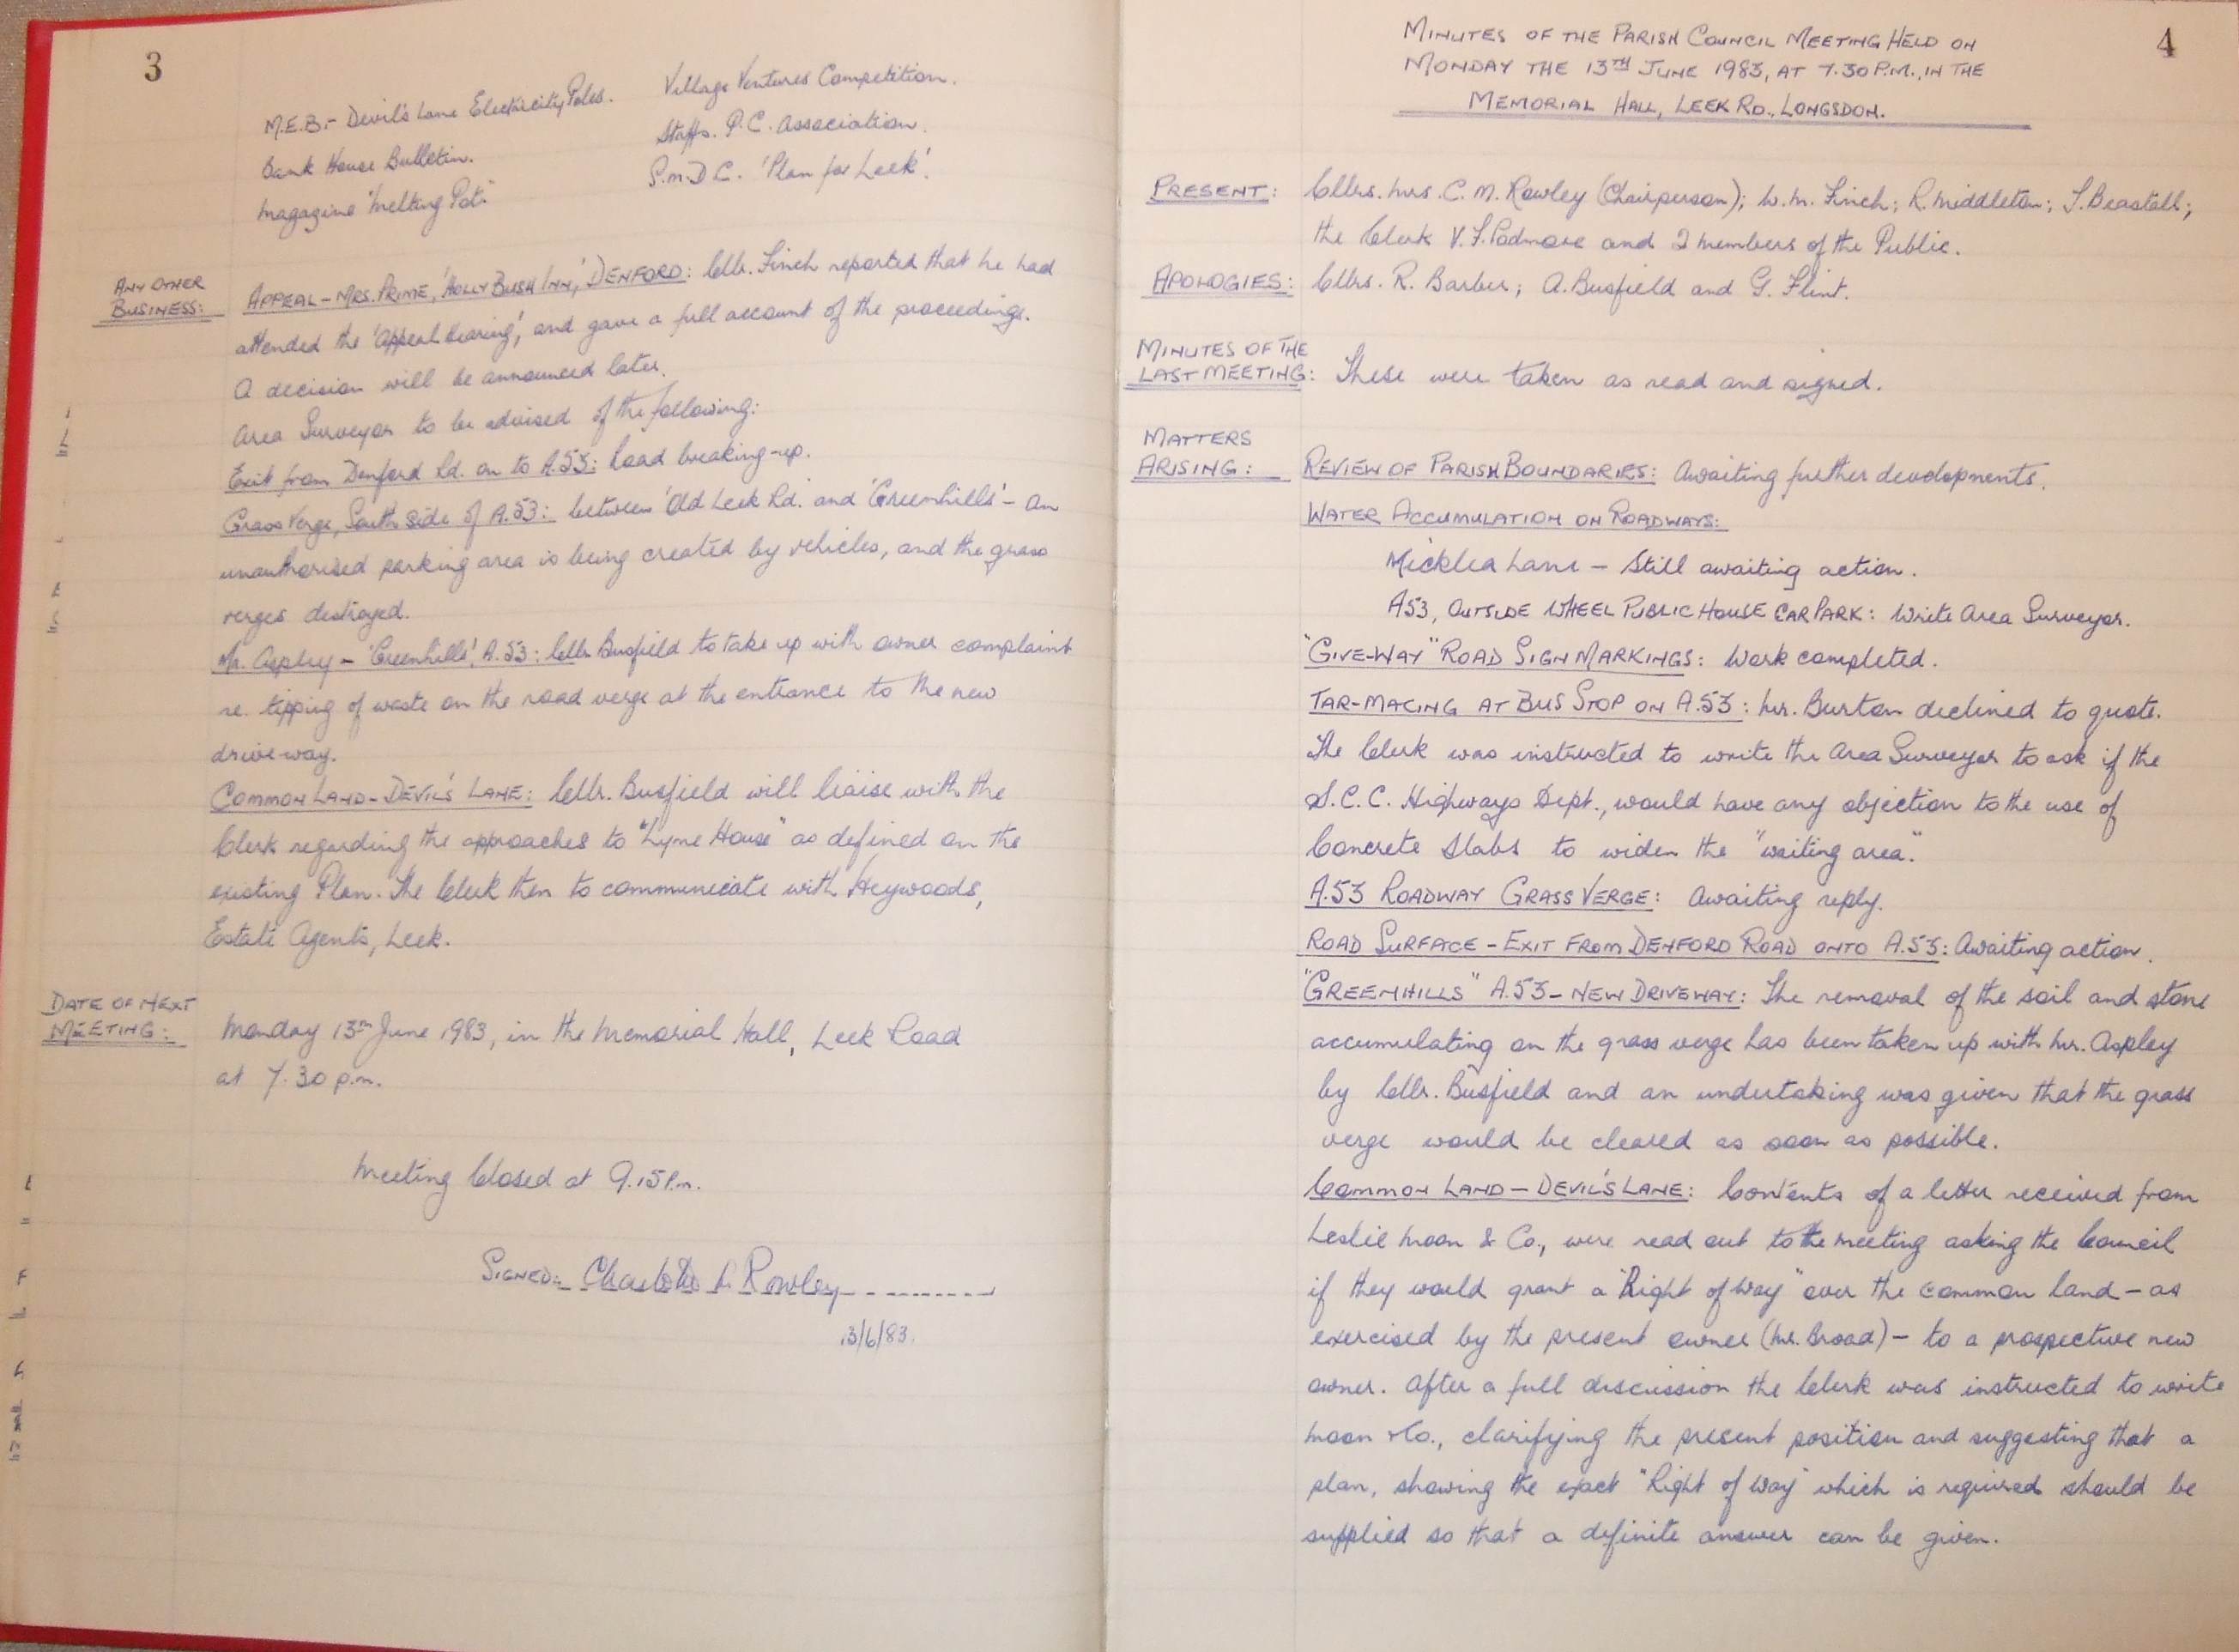 3
M.E.B:- Devil's Lane Electricity Poles.
Bank House Bulletin.
Magazine 'Melting Pot.'
Village Ventures Competition.
Staffs. P.C. Association.
S.M.D.C. 'Plan for Leek'.
ANY OTHER
BUSINESS:
APPEAL - MRS. PRIME, 'HOLLY BUSH INN,' DENFORD: Cllr. Finch reported that he had
attended the 'Appeal Hearing', and gave a full account of the proceedings.
A decision will be announced later.
Area Surveyor to be advised of the following:
Exit from Denford Rd. on to A.53: Road breaking-up.
Grass Verge, South Side of A.53: between 'Old Leek Rd.' and 'Greenhills' - an
unauthorised parking area is being created by vehicles, and the grass
verges destroyed.
Mr. Aspley - 'Greenhills', A.53: Cllr. Busfield to take up with owner complaint
re. tipping of waste on the road verge at the entrance to the new
driveway.
COMMON LAND - DEVIL'S LANE: Cllr. Busfield will liaise with the
Clerk regarding the approaches to "Lyme House" as defined on the
existing Plan. The Clerk then to communicate with Heywoods,
Estate Agents, Leek.
DATE OF NEXT
MEETING:
Monday 13th June 1983, in the Memorial Hall, Leek Road
at 7.30 p.m.
Meeting Closed at 9.15 P.m.
SIGNED:- Rowley
13/6/83.
4
MINUTES OF THE PARISH COUNCIL MEETING HELD ON
MONDAY THE 13TH JUNE 1983, AT 7.30 P.M., IN THE
MEMORIAL HALL, LEEK RD., LONGSDON.
PRESENT: Cllrs. Mrs. C. M. Rowley (Chairperson); W. M. Finch; R. Middleton; J. Beastall;
the Clerk V. J. Padmore and 2 members of the Public.
APOLOGIES: Cllrs. R. Barber; A. Busfield and G. Flint.
MINUTES OF THE
LAST MEETING: These were taken as read and signed.
MATTERS
ARISING: REVIEW OF PARISH BOUNDARIES: Awaiting further developments.
WATER ACCUMULATION ON ROADWAYS:
Micklea Lane - Still awaiting action.
A53, OUTSIDE WHEEL PUBLIC HOUSE CAR PARK: Write Area Surveyor.
"GIVE-WAY" ROAD SIGN MARKINGS: Work completed.
TAR-MACING AT BUS STOP ON A.53: Mr. Burton declined to quote.
The Clerk was instructed to write the Area Surveyor to ask if the
S.C.C. Highways Dept., would have any objection to the use of
Concrete Slabs to widen the "waiting area."
A.53 ROADWAY GRASS VERGE: Awaiting reply.
ROAD SURFACE - EXIT FROM DENFORD ROAD ONTO A.53: Awaiting action.
"GREENHILLS" A.53 - NEW DRIVEWAY: The removal of the soil and stone
accumulating on the grass verge has been taken up with Mr. Aspley
by Cllr. Busfield and an undertaking was given that the grass
verge would be cleared as soon as possible.
COMMON LAND - DEVIL'S LANE: Contents of a letter received from
Leslie Moon & Co., were read out to the meeting asking the Council
if they would grant a "Right of Way" over the common land - as
exercised by the present owner (Mr. Broad) - to a prospective new
owner. After a full discussion the Clerk was instructed to write
Moon & Co., clarifying the present position and suggesting that a
plan, showing the exact "Right of Way" which is required should be
supplied so that a definite answer can be given.